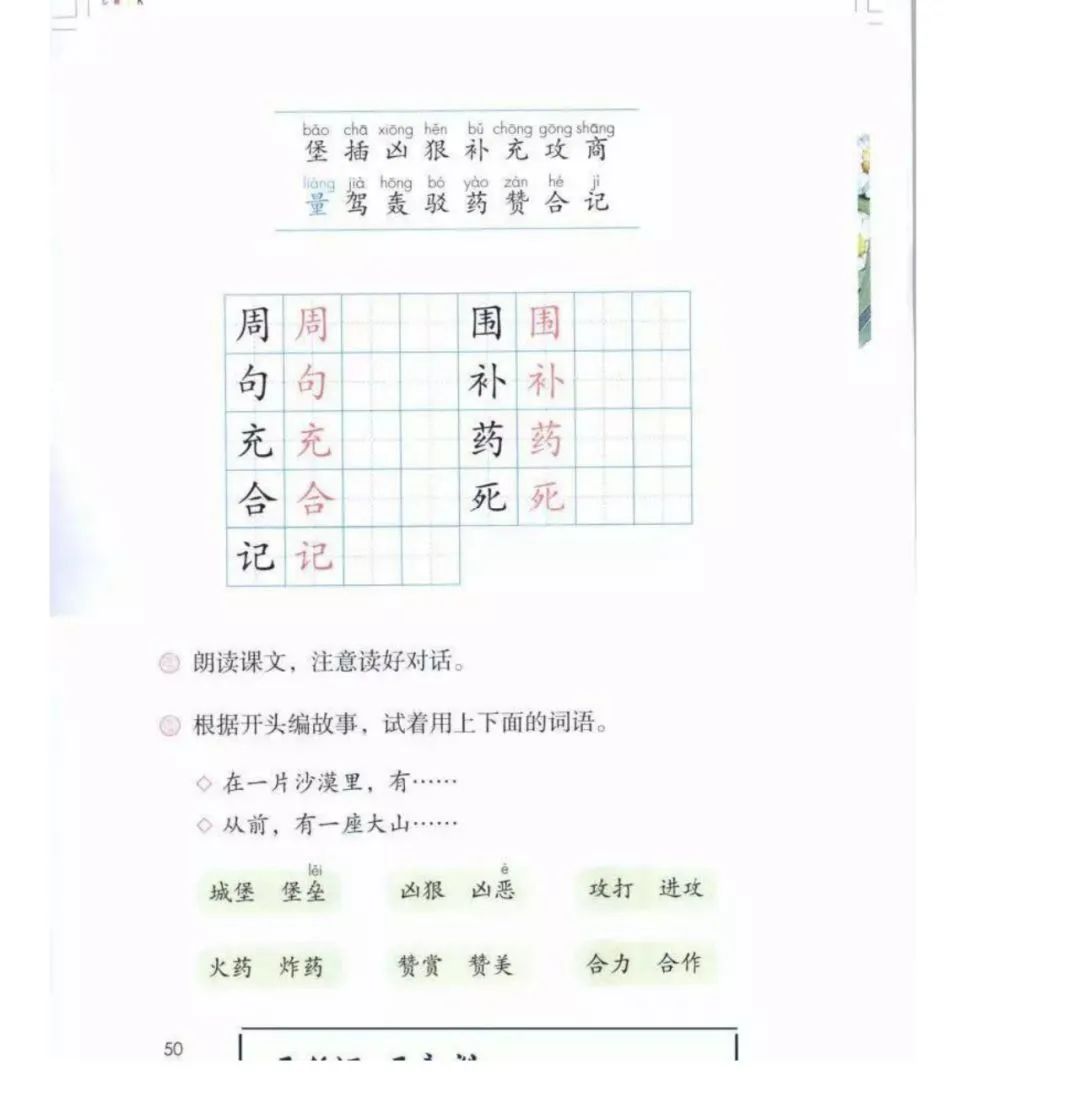 bǎo chā xiōng hěn bǔ chōng gōng shāng
堡 插 凶 狠 补 充 攻 商
liàng jià hōng bó yào zàn hé jì
量 驾 轰 驳 药 赞 合 记
周 周 围 围
句 句 补 补
充 充 药 药
合 合 死 死
记 记
朗读课文，注意读好对话。
根据开头编故事，试着用上下面的词语。
◇ 在一片沙漠里，有……
◇ 从前，有一座大山……
lěi è
城堡 堡垒 凶狠 凶恶 攻打 进攻
火药 炸药 赞赏 赞美 合力 合作
50